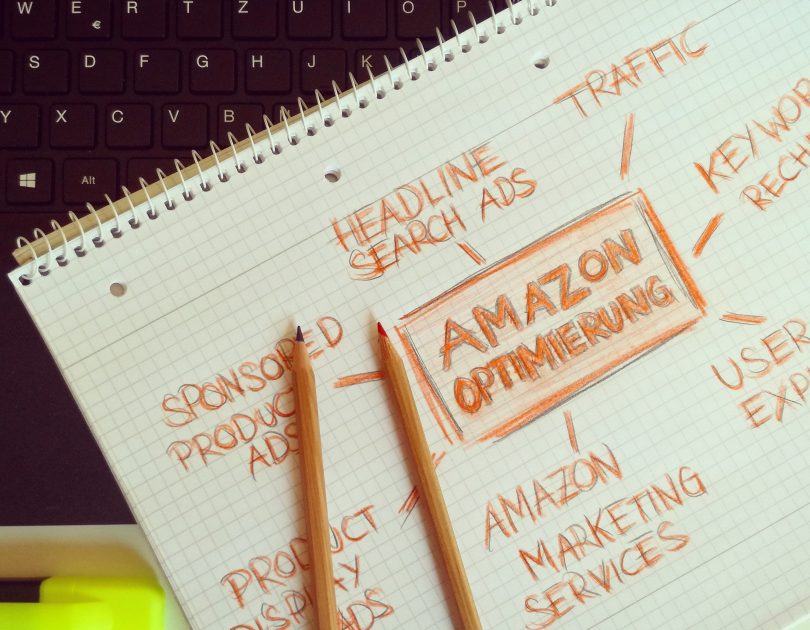 W E R T Z U I O P
€
S D F G H J K
Y X C V B
Alt
TRAFFIC
HEADLINE
SEARCH ADS
AMAZON
OPTIMIERUNG
SPONSORED
PRODUCT
ADS
USER
AMAZON
MARKETING
SERVICES
PRODUCT
DISPLAY
ADS